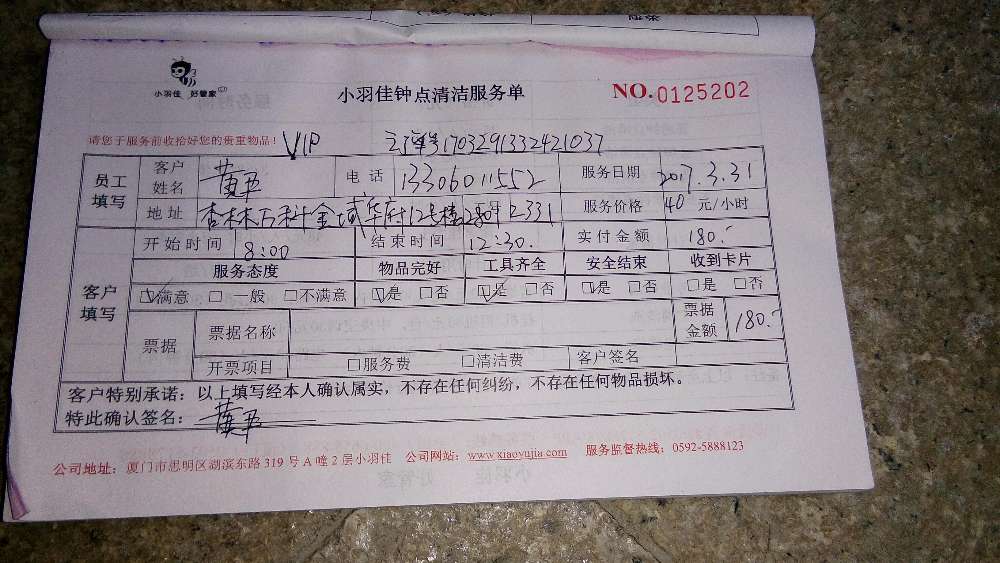 小羽佳 好管家
小羽佳钟点清洁服务单
NO.0125202
请您于服务前收拾好您的贵重物品！
VIP 订单号1703291332421037
员工填写
客户姓名 黄
电话 13306011552
服务日期 2017.3.31
地址 杏林万科金域华府12号楼 2331
服务价格 40 元/小时
客户填写
开始时间 8:00
结束时间 12:30.
实付金额 180.-
服务态度 物品完好 工具齐全 安全结束 收到卡片
☑满意 □一般 □不满意 ☑是 □否 ☑是 □否 ☑是 □否 □是 □否
票据
票据名称
票据金额 180.-
开票项目 □服务费 □清洁费 客户签名
客户特别承诺：以上填写经本人确认属实，不存在任何纠纷，不存在任何物品损坏。
特此确认签名： 黄
公司地址：厦门市思明区湖滨东路319号A幢2层小羽佳 公司网站：www.xiaoyujia.com 服务监督热线：0592-5888123